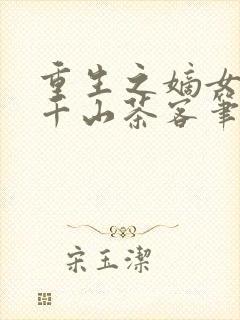 重生之嫡女
千山茶客筆
宋玉潔